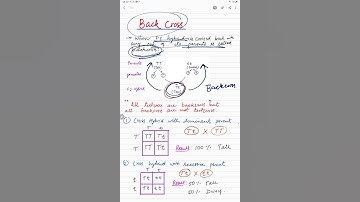 Back Cross
→ When F1 hybrid is crossed back with
any one of its parents is called
Backcross.
Parents TT tt
(Tall) (Dwarf)
gametes T t
F1 hybrid Tt
(Tall) Backcross
All testcross are backcross but
all backcross are not testcross
① Cross Hybrid with dominant parent
T t
T TT Tt
T TT Tt
Tt X TT
Result: 100% Tall
② Cross hybrid with recessive parent
T t
t Tt tt
t Tt tt
Tt X tt
Result: 50% Tall
50% Dwarf